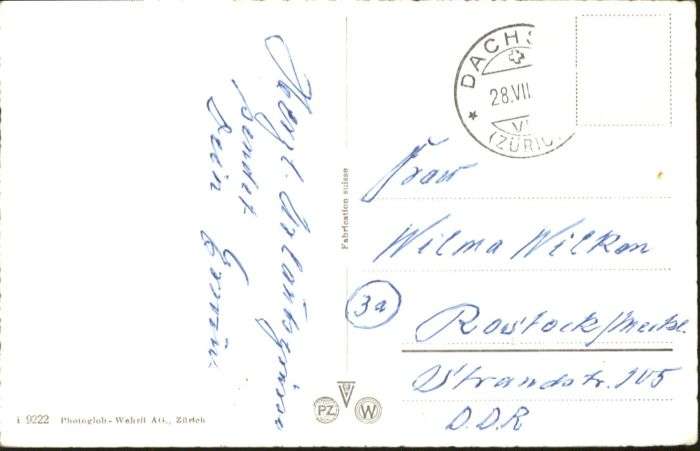 Herzl. Urlaubsgrüsse
sendet
Dein Erwin
DACHS
28.VII
(ZÜRIC
Frau
Wilma Wilken
3a
Rostock/Meckl.
Strandstr. 105
D.D.R
Fabrication suisse
PZ
W
i 9222 Photoglob-Wehrli AG., Zürich